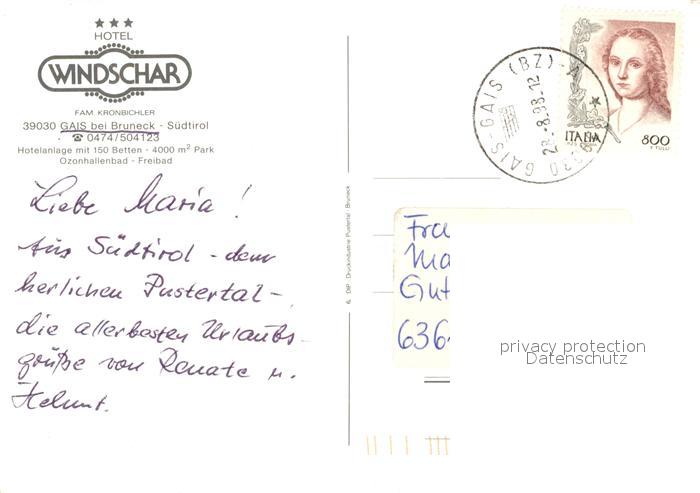 HOTEL
WINDSCHAR
FAM. KRONBICHLER
39030 GAIS bei Bruneck - Südtirol
☎ 0474/504123
Hotelanlage mit 150 Betten - 4000 m² Park
Ozonhallenbad - Freibad
Liebe Maria!
Aus Südtirol - dem
herlichen Pustertal -
die allerbesten Urlaubs-
grüße von Renate u.
Helmut.
DIP - Druckindustrie Pustertal - Bruneck
GAIS-GAIS (BZ)-A
28.-8.98-12
ITALIA
800
Fra
Ma
Gut
636
privacy protection
Datenschutz